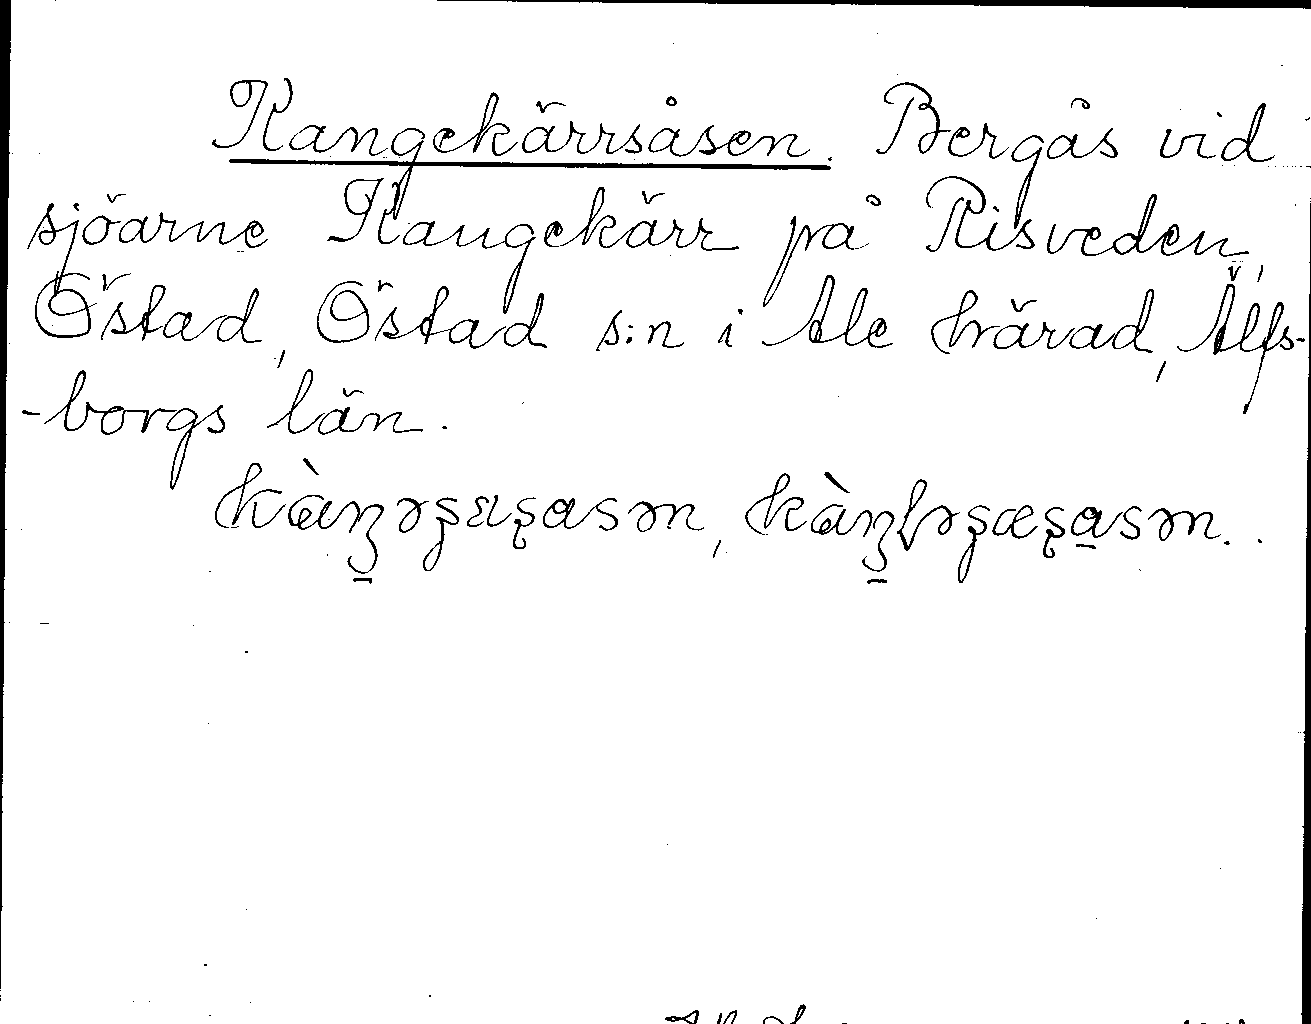 Kangekärrsåsen. Bergås vid
sjöarne Kangekärr på Risveden,
Östad, Östad s:n i Ale härad, Älfs-
-borgs län.